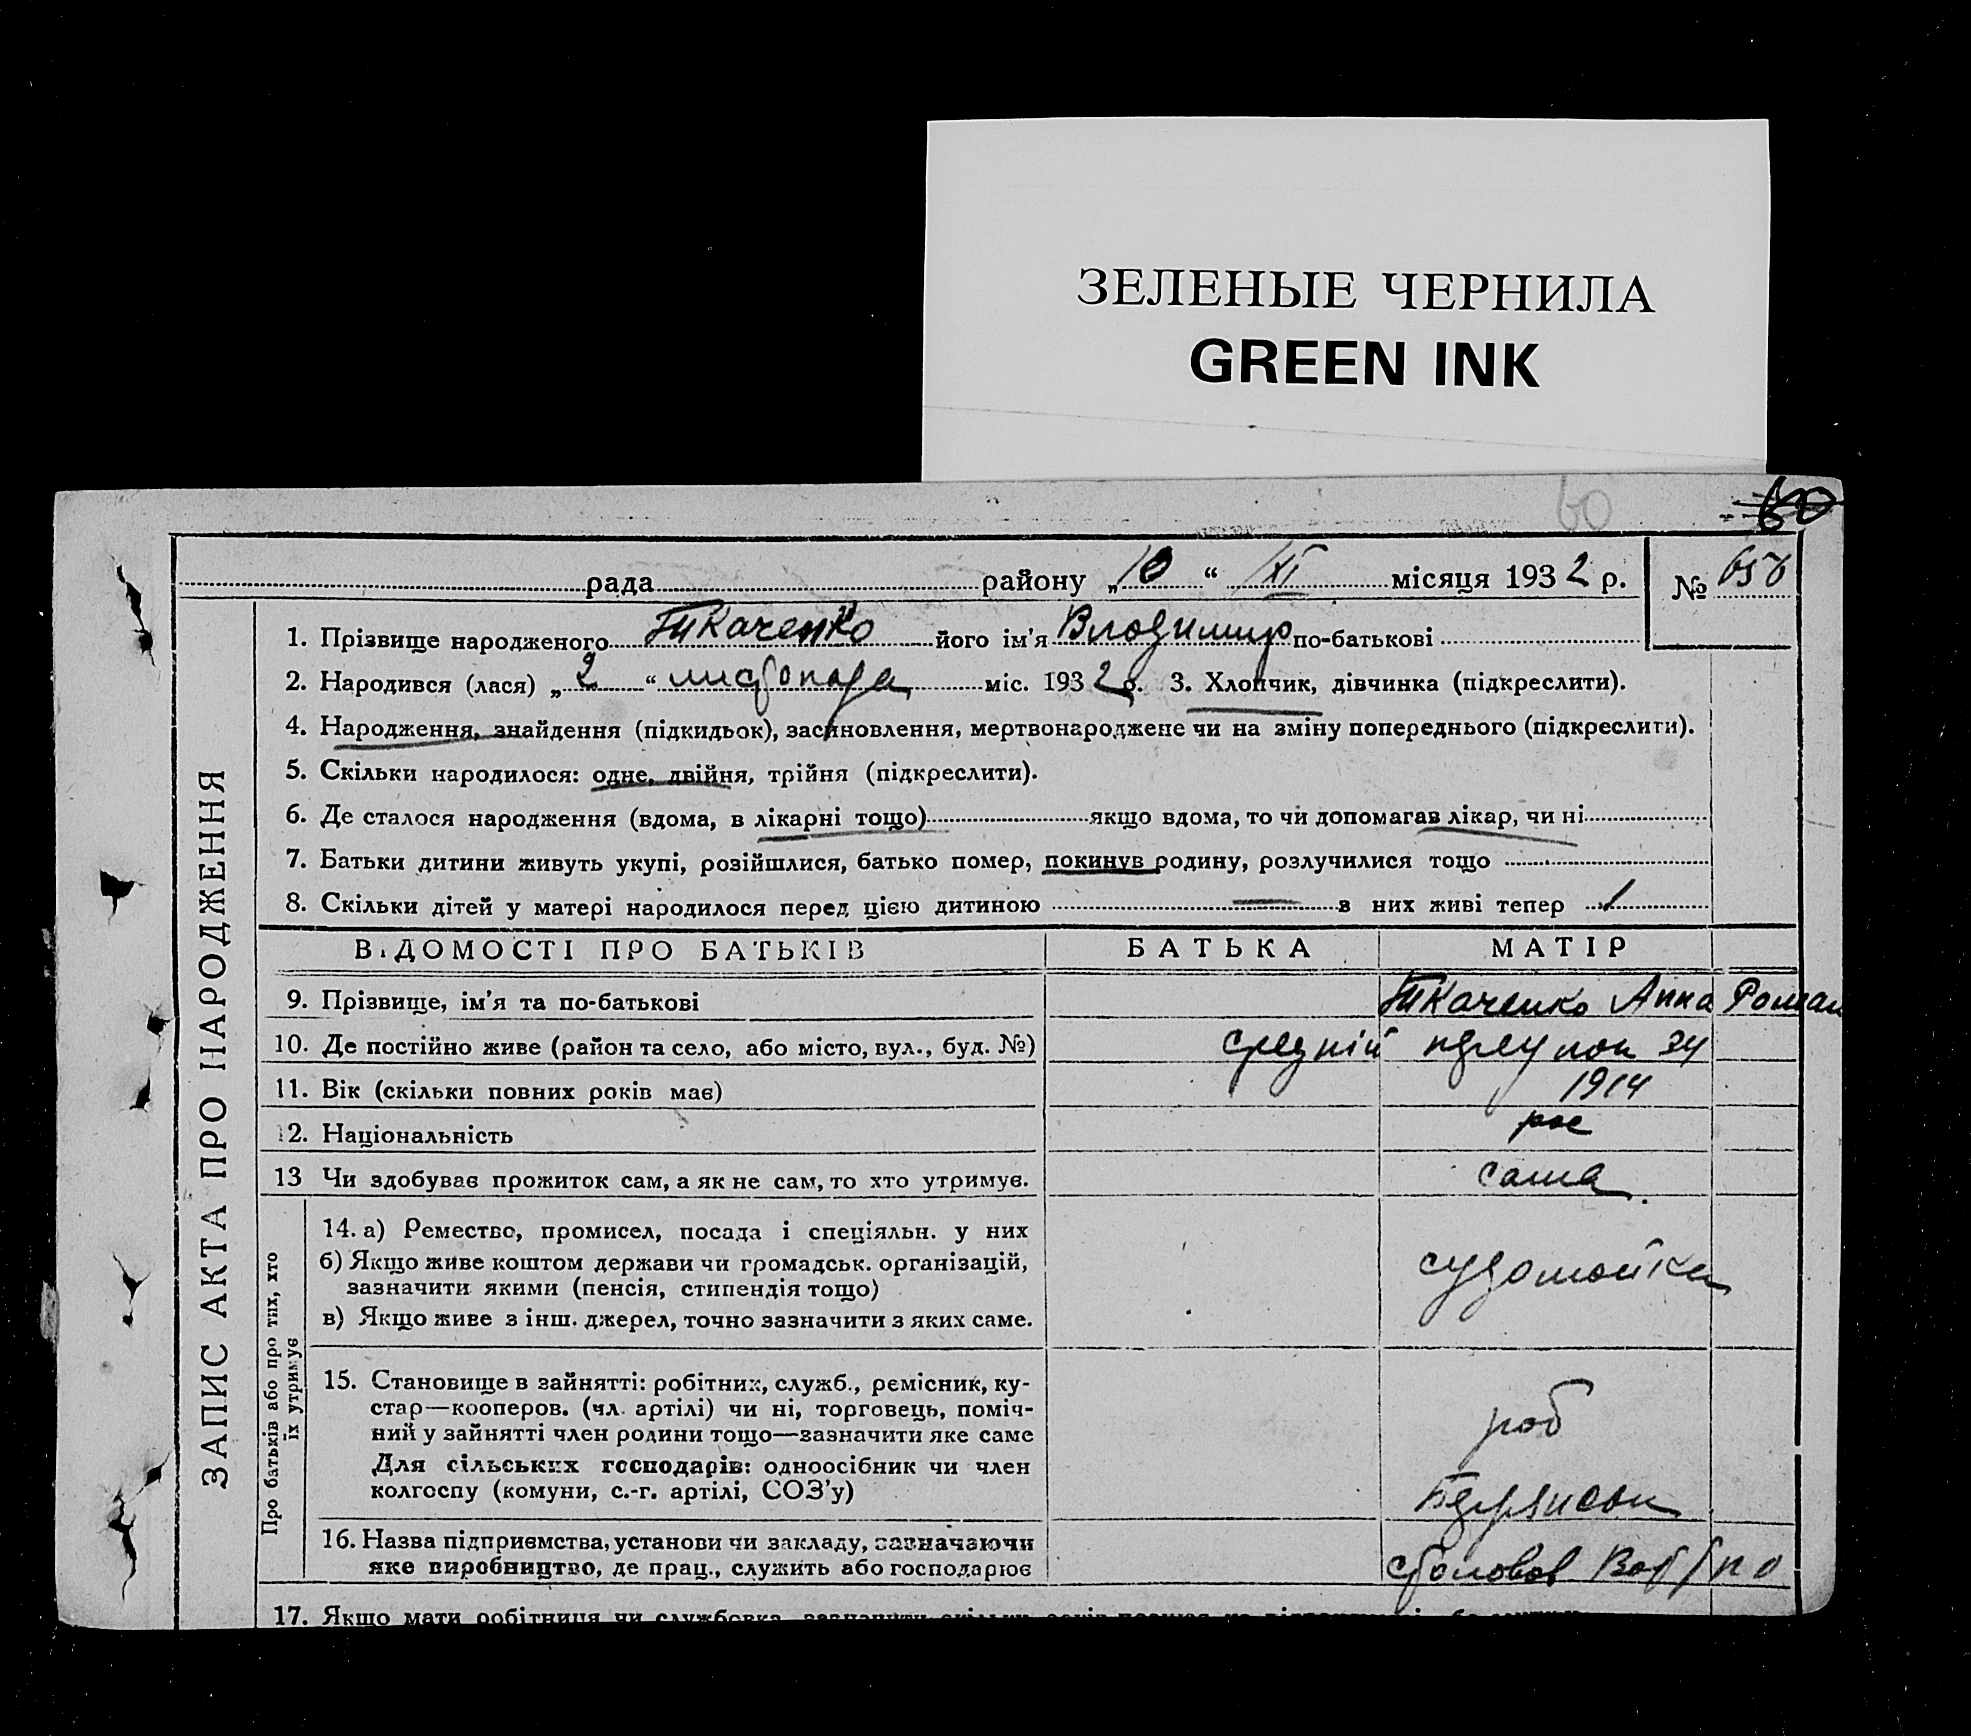 ЗЕЛЕНЫЕ ЧЕРНИЛА
GREEN INK
60
60
рада району „10“ XI місяця 1932 р. №
1. Прізвище народженого Ткаченко його ім'я Владимир по-батькові
2. Народився (лася) „2“ листопада міс. 1932 р. 3. Хлопчик, дівчинка (підкреслити).
4. Народження, знайдення (підкидьок), засиновлення, мертвонароджене чи на зміну попереднього (підкреслити).
5. Скільки народилося: одне, двійня, трійня (підкреслити).
6. Де сталося народження (вдома, в лікарні тощо) якщо вдома, то чи допомагав лікар, чи ні
7. Батьки дитини живуть укупі, розійшлися, батько помер, покинув родину, розлучилися тощо
8. Скільки дітей у матері народилося перед цією дитиною — в них живі тепер 1
ЗАПИС АКТА ПРО НАРОДЖЕННЯ
ВІДОМОСТІ ПРО БАТЬКІВ БАТЬКА МАТІР
9. Прізвище, ім'я та по-батькові Ткаченко Анна Роман
10. Де постійно живе (район та село, або місто, вул., буд. №) средній 34
11. Вік (скільки повних років має) 1914
12. Національність рос
13 Чи здобуває прожиток сам, а як не сам, то хто утримує. сама
Про батьків або про тих, хто
їх утримує
14. а) Ремество, промисел, посада і спеціяльн. у них
б) Якщо живе коштом держави чи громадськ. організацій,
зазначити якими (пенсія, стипендія тощо)
судомойка
в) Якщо живе з інш. джерел, точно зазначити з яких саме.
15. Становище в зайнятті: робітник, служб., ремісник, ку-
стар—кооперов. (чл. артілі) чи ні, торговець, поміч-
ний у зайнятті член родини тощо—зазначити яке саме
роб
Для сільських господарів: одноосібник чи член
колгоспу (комуни, с.-г. артілі, СОЗ'у)
16. Назва підприємства, установи чи закладу, зазначаючи
яке виробництво, де прац., служить або господарює столовая
17. Якщо мати робітниця чи службовка, зазначити скільки